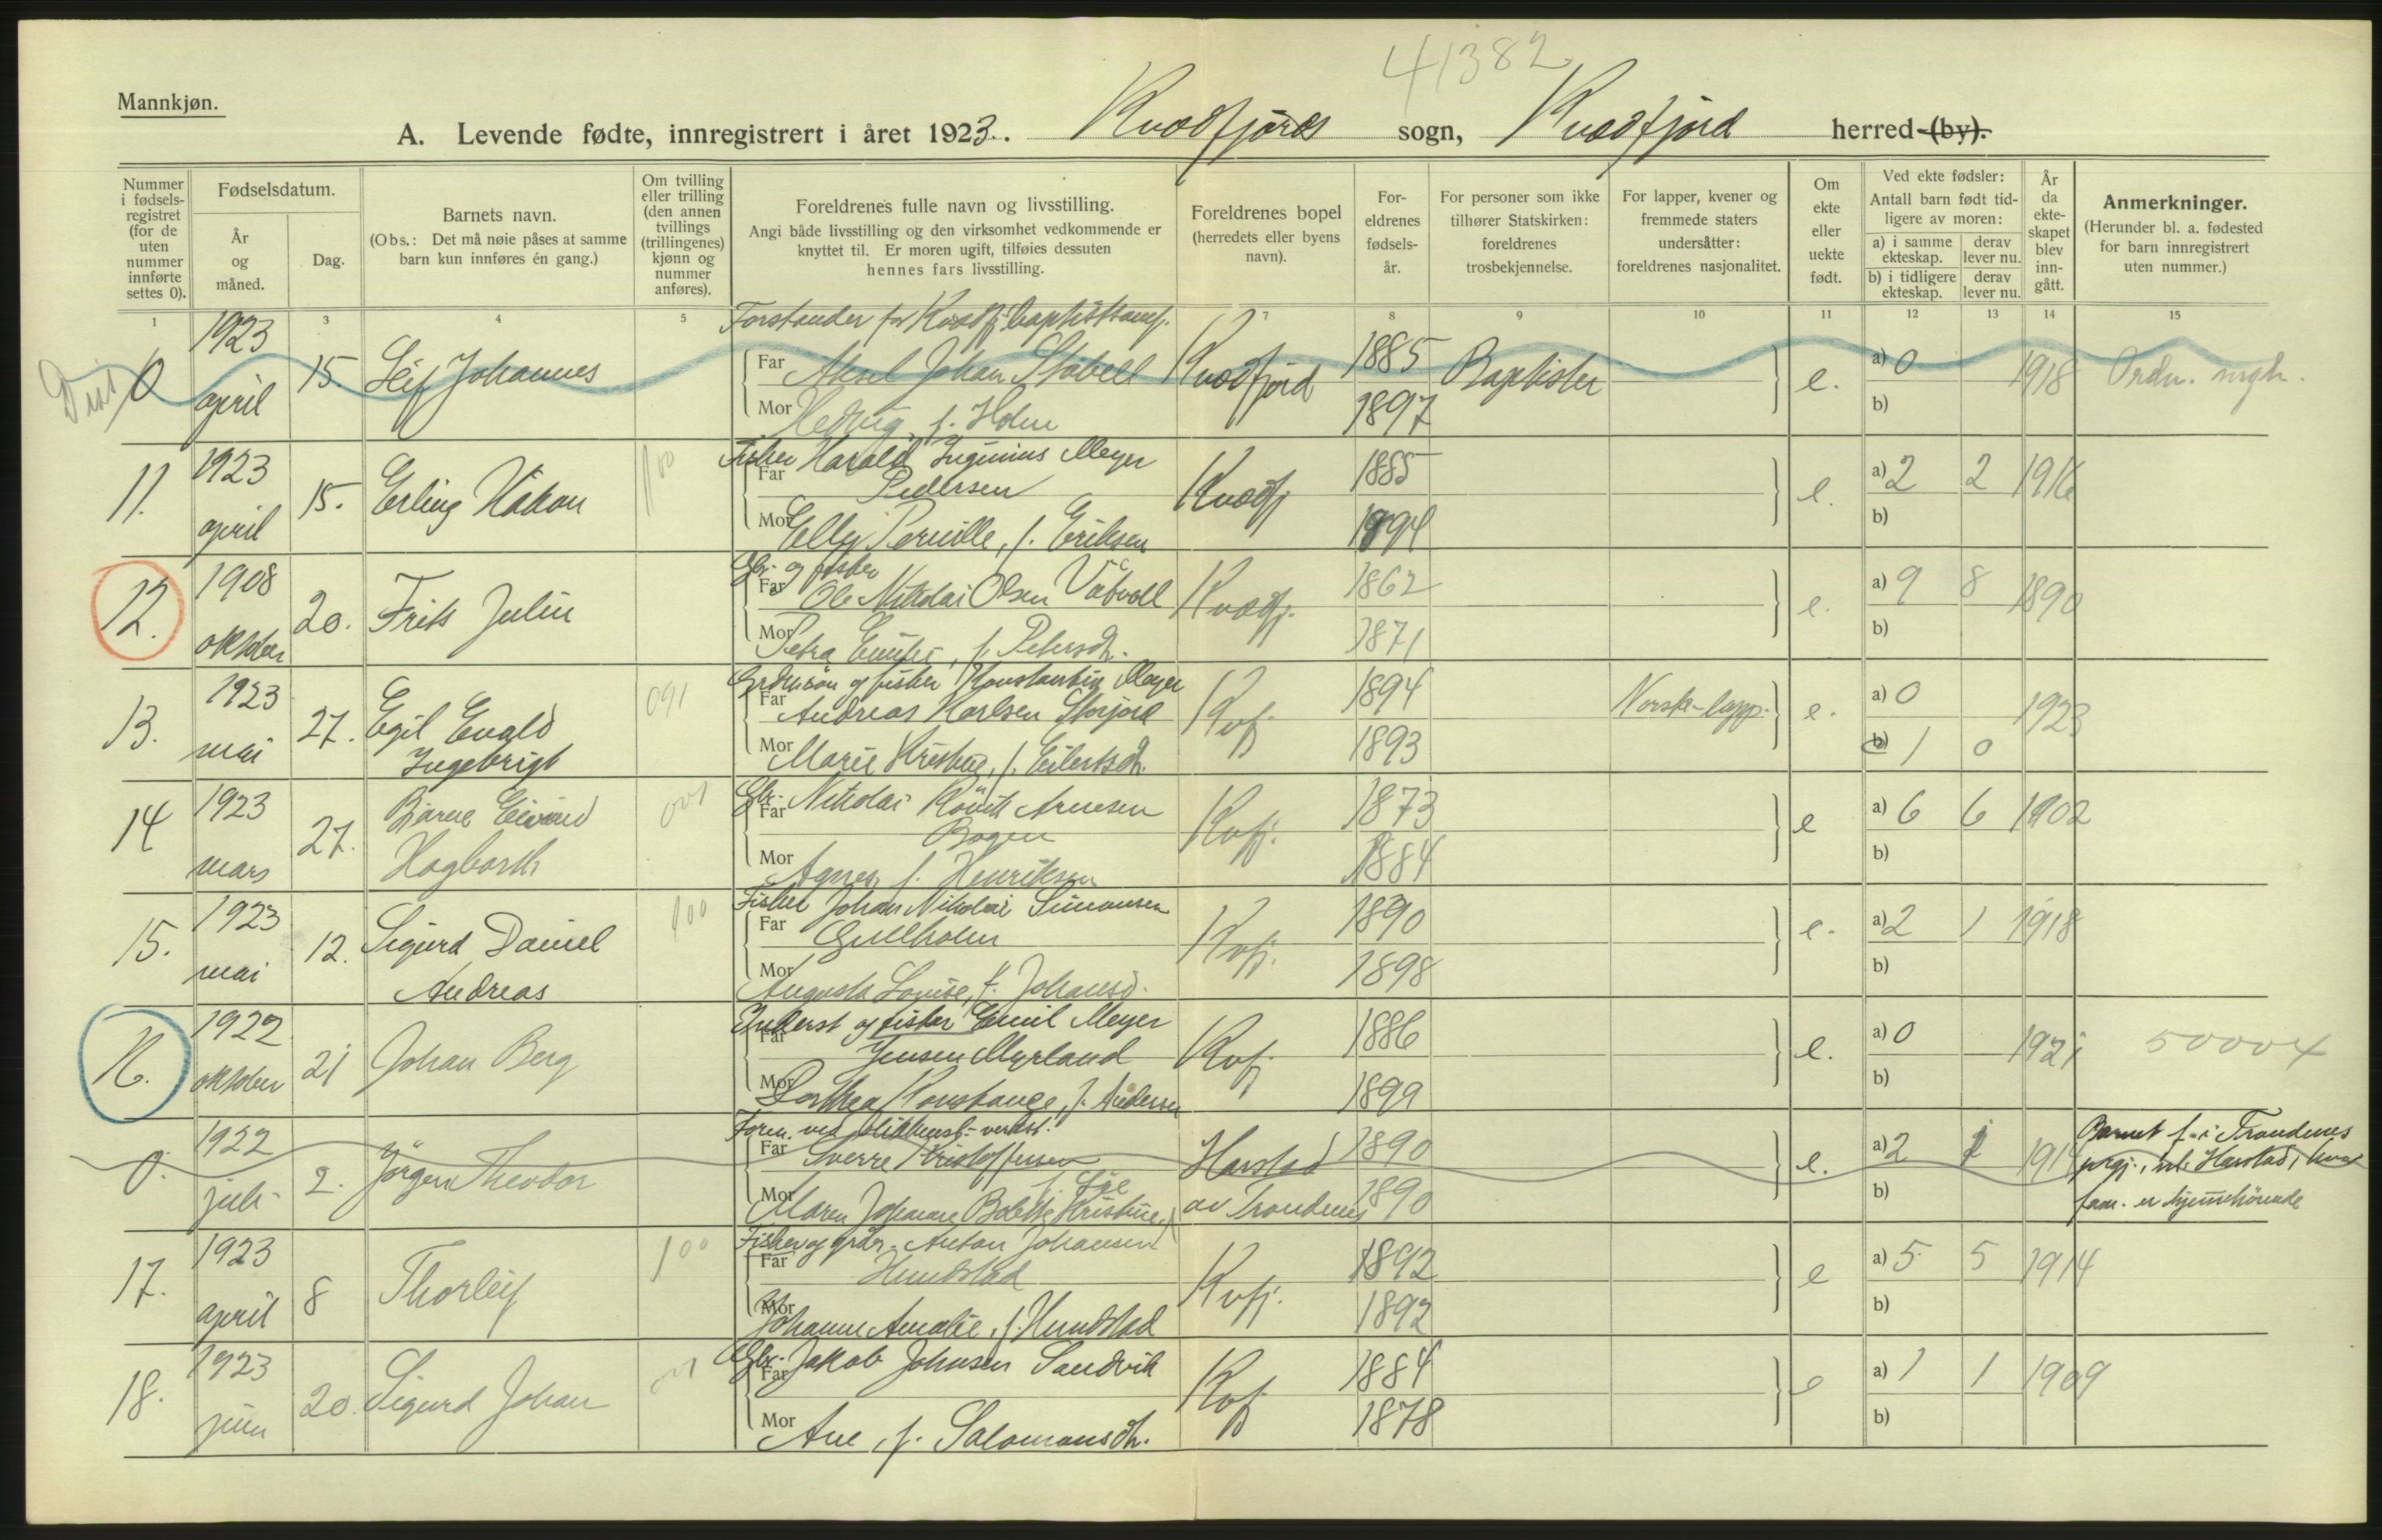 41382
Mannkjøn.
A. Levende fødte, innregistrert i året 1923. Kvædfjords sogn, Kvædfjord herred (by).
Nummer i fødselsregistret (for de uten nummer innførte settes 0).
Fødselsdatum.
År og måned.
Dag.
Barnets navn.
(Obs.: Det må nøie påses at samme barn kun innføres én gang.)
Om tvilling eller trilling (den annen tvillings (trillingenes) kjønn og nummer anføres).
Foreldrenes fulle navn og livsstilling.
Angi både livsstilling og den virksomhet vedkommende er knyttet til. Er moren ugift, tilføies dessuten hennes fars livsstilling.
Foreldrenes bopel (herredets eller byens navn).
Foreldrenes fødselsår.
For personer som ikke tilhører Statskirken: foreldrenes trosbekjennelse.
For lapper, kvener og fremmede staters undersåtter: foreldrenes nasjonalitet.
Om ekte eller uekte født.
Ved ekte fødsler:
Antall barn født tidligere av moren:
a) i samme ekteskap. derav lever nu.
b) i tidligere ekteskap. derav lever nu.
År da ekteskapet blev inngått.
Anmerkninger.
(Herunder bl. a. fødested for barn innregistrert uten nummer.)
1 3 4 5 7 8 9 10 11 12 13 14 15
Forstander for Kvædfj. baptistmenf.
0 1923 april 15. Leif Johannes Far Aksel Johan Stabell Kvædfjord 1885 Baptister e. a) 0 1918 Ordn. mgh.
Mor Hedvig, f. Holm 1897 b)
11. 1923 april 15. Erling Håkon 100 Fisker Harald Ingenius Meyer
Far Pedersen Kvædfj 1885 e. a) 2 2 1916
Mor Elly Pernille, f. Eriksen 1894 b)
12. 1908 oktober 20. Frits Julin Gbr. og fisker
Far Ole Nikolai Olsen Våtvoll Kvædfj. 1862 e. a) 9 8 1890
Mor Petra , f. Petersdt. 1871 b)
13. 1923 mai 27. Egil Evald Ingebrigt 091 Grdmsøn og fisker Konstantin Meyer
Far Andreas Karlsen Storjord Kvfj. 1894 Norsk-lapp. e. a) 0 1923
Mor Marie , f. Eilertsdt. 1893 b) 1 0
14 1923 mars 27. Bjarne Eivind Hagbarth 001 Gbr. Nikolai Arnesen
Far Bogen Kvfj. 1873 e a) 6 6 1902
Mor Agnes, f. Henriksen 1884 b)
15. 1923 mai 12. Sigurd Daniel Andreas 100 Fisker Johan Nikolai Simonsen
Far Gullholm Kvfj. 1890 e. a) 2 1 1918
Mor Augusta Lovise, f. Johansd. 1898 b)
16. 1922 oktober 21 Johan Berg Inderst og fisker Emil Meyer
Far Jensen Myrland Kvfj. 1886 e. a) 0 1921 50004
Mor Dorthea Konstance, f. Andersen 1899 b)
0. 1922 juli 2. Jörgen Theodor Form. ved
Far Sverre Kristoffersen Harstad 1890 e. a) 2 1914 Barnet f. i Trondenes
prgj., Harstad, hvor
Mor Maren Johanne Bolette Kristine, av Trondenes 1890 b) fam. er hjemmehörende
17. 1923 april 8 Thorleif 100 Fisker og grdbr. Anton Johansen
Far Hundstad Kvfj. 1892 e a) 5 5 1914
Mor Johanne Amalie, f. Hundstad 1892 b)
18. 1923 juni 20 Sigurd Johan 001 Gbr. Jakob Johnsen Sandvik
Far Kvfj 1884 e a) 1 1 1909
Mor Ane, f. Salomonsdt. 1878 b)